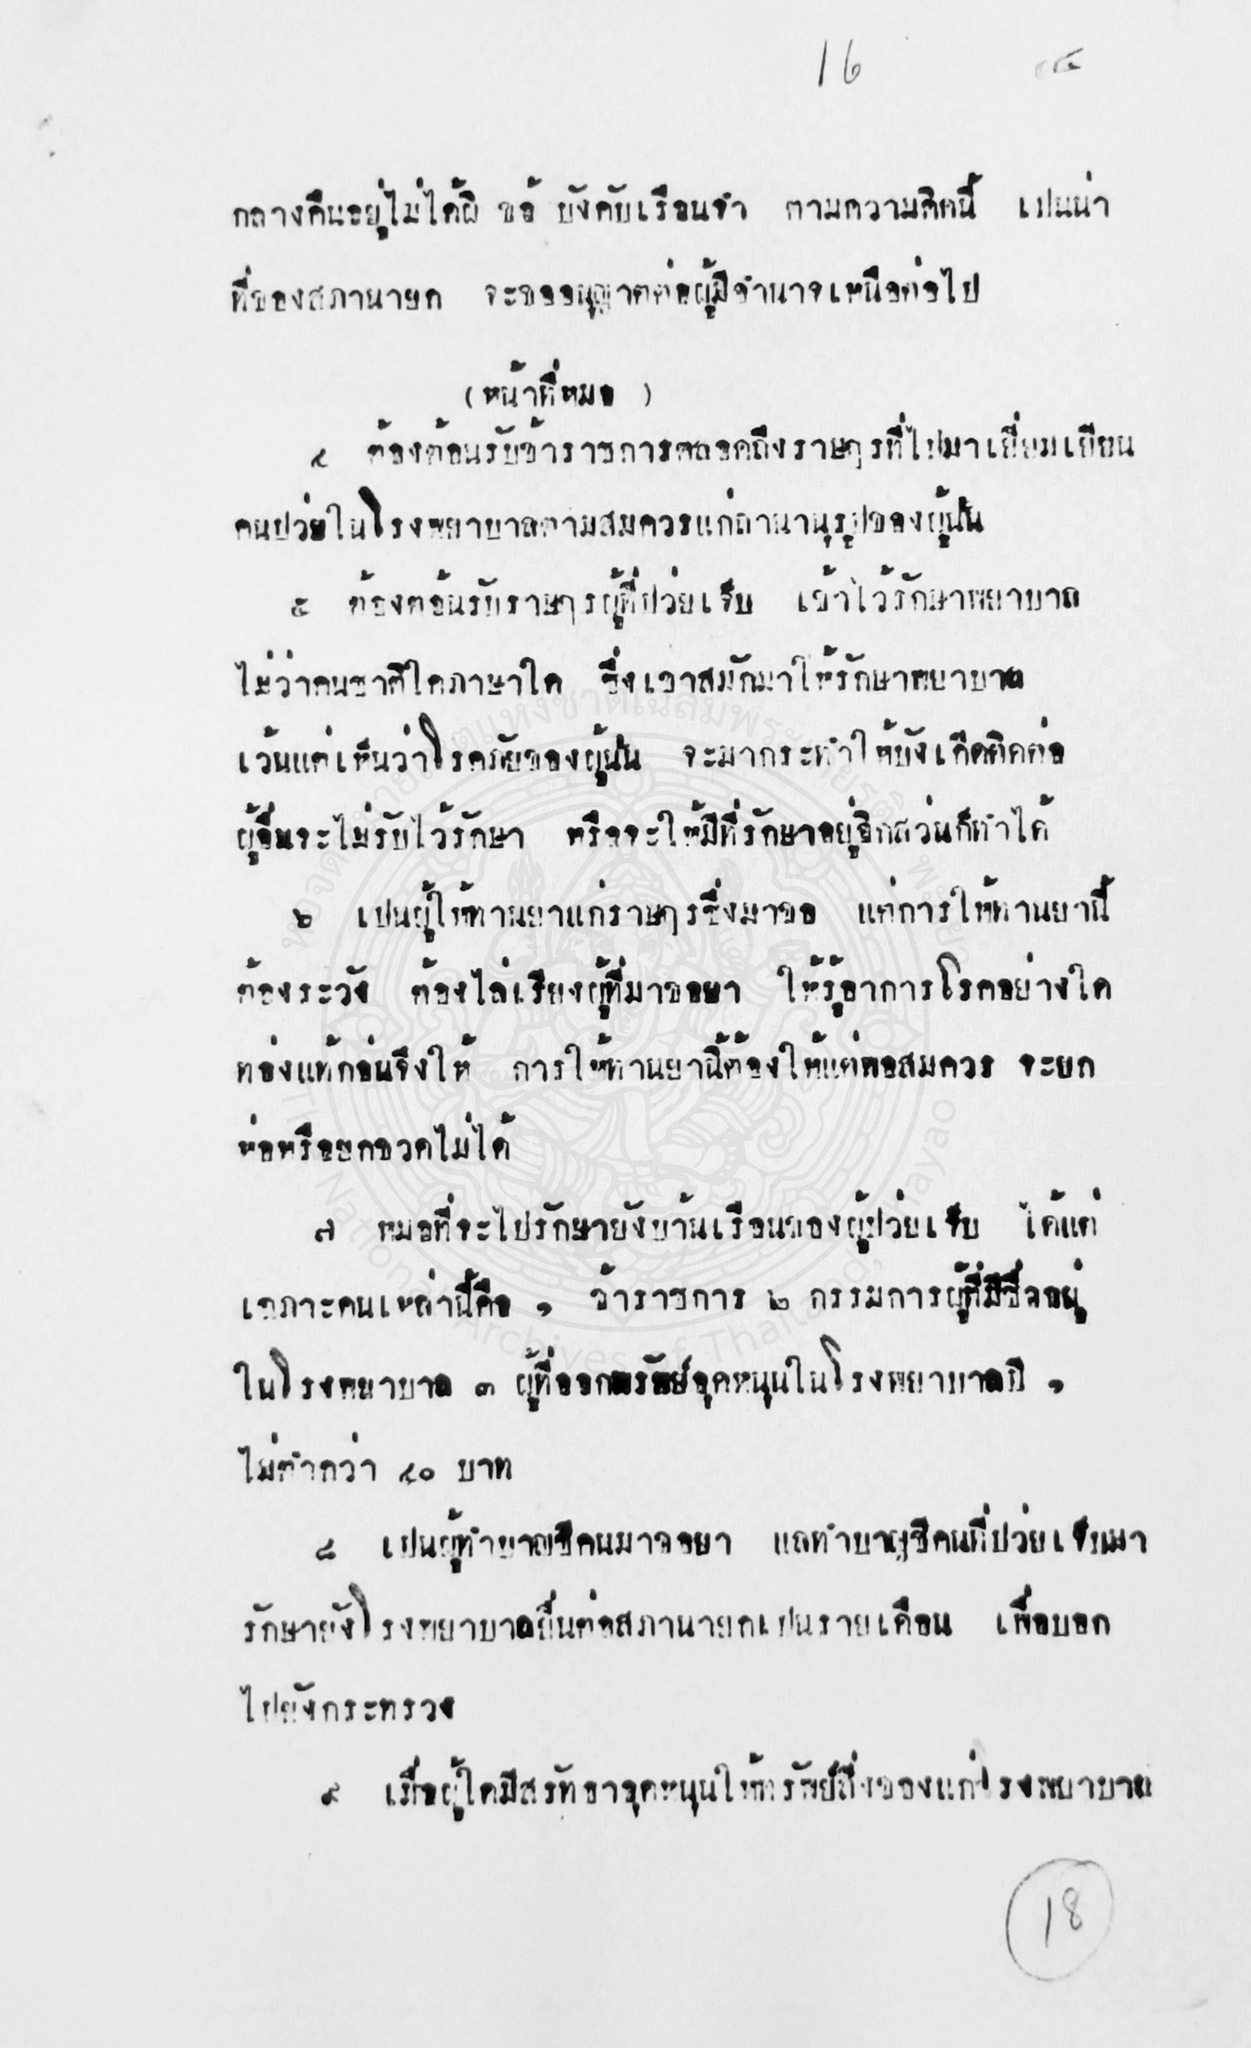 16
กลางคืนอยู่ไม่ได้ผิ ขอ้ บังคับเรือนจำ ตามความคิดนี้ เปนน่า
ที่ของสภานายก จะขออนุญาตต่อผู้มีอำนาจเหนือต่อไป
(หน้าที่หมอ)
๔ ต้องต้อนรับข้าราชการตลอดถึงราษฎรที่ไปมาเยี่ยมเยียน
คนป่วยในโรงพยาบาลตามสมควรแก่ถานานุรูปของผู้นั้น
๕ ต้องตอ้นรับราษฎรผู้ที่ป่วยเจ็บ เข้าไว้รักษาพยาบาล
ไม่ว่าคนชาติใดภาษาใด ซึ่งเขาสมัคมาให้รักษาพยาบาล
เว้นแต่เห็นว่าโรคภัยของผู้นั้น จะมากระทำให้บังเกิดติดต่อ
ผู้อื่นจะไม่รับไว้รักษา หรือจะให้มีที่รักษาอยู่อีกส่วนก็ทำได้
๖ เปนผู้ให้ทานยาแก่ราษฎรซึ่งมาขอ แต่การให้ทานยานี้
ต้องระวัง ต้องไล่เรียงผู้ที่มาขอยา ให้รู้อาการโรคอย่างใด
ท่องแท้ก่อนจึงให้ การให้ทานยานี้ต้องให้แต่พอสมควร จะยก
ห่อหรือยกขวดไม่ได้
๗ หมอที่จะไปรักษายังบ้านเรือนของผู้ป่วยเจ็บ ได้แต่
เฉภาะคนเหล่านี้คือ ๑ ข้าราชการ ๒ กรรมการผู้ที่มีชื่ออยู่
ในโรงพยาบาล ๓ ผู้ที่ออกทรัพย์อุดหนุนในโรงพยาบาลปี ๑
ไม่ต่ำกว่า ๔๐ บาท
๘ เปนผู้ทำบาญชีคนมาขอยา แลทำบาญชีคนที่ป่วยเจ็บมา
รักษายังโรงพยาบาลยื่นต่อสภานายกเปนรายเดือน เพื่อบอก
ไปยังกระทรวง
๙ เมื่อผู้ใดมีสรัทธาอุดหนุนให้ทรัพย์สิ่งของแก่โรงพยาบาล
18
หอจดหมายเหตุแห่งชาติเฉลิมพระเกียรติฯ พะเยา
The National Archives of Thailand, Phayao